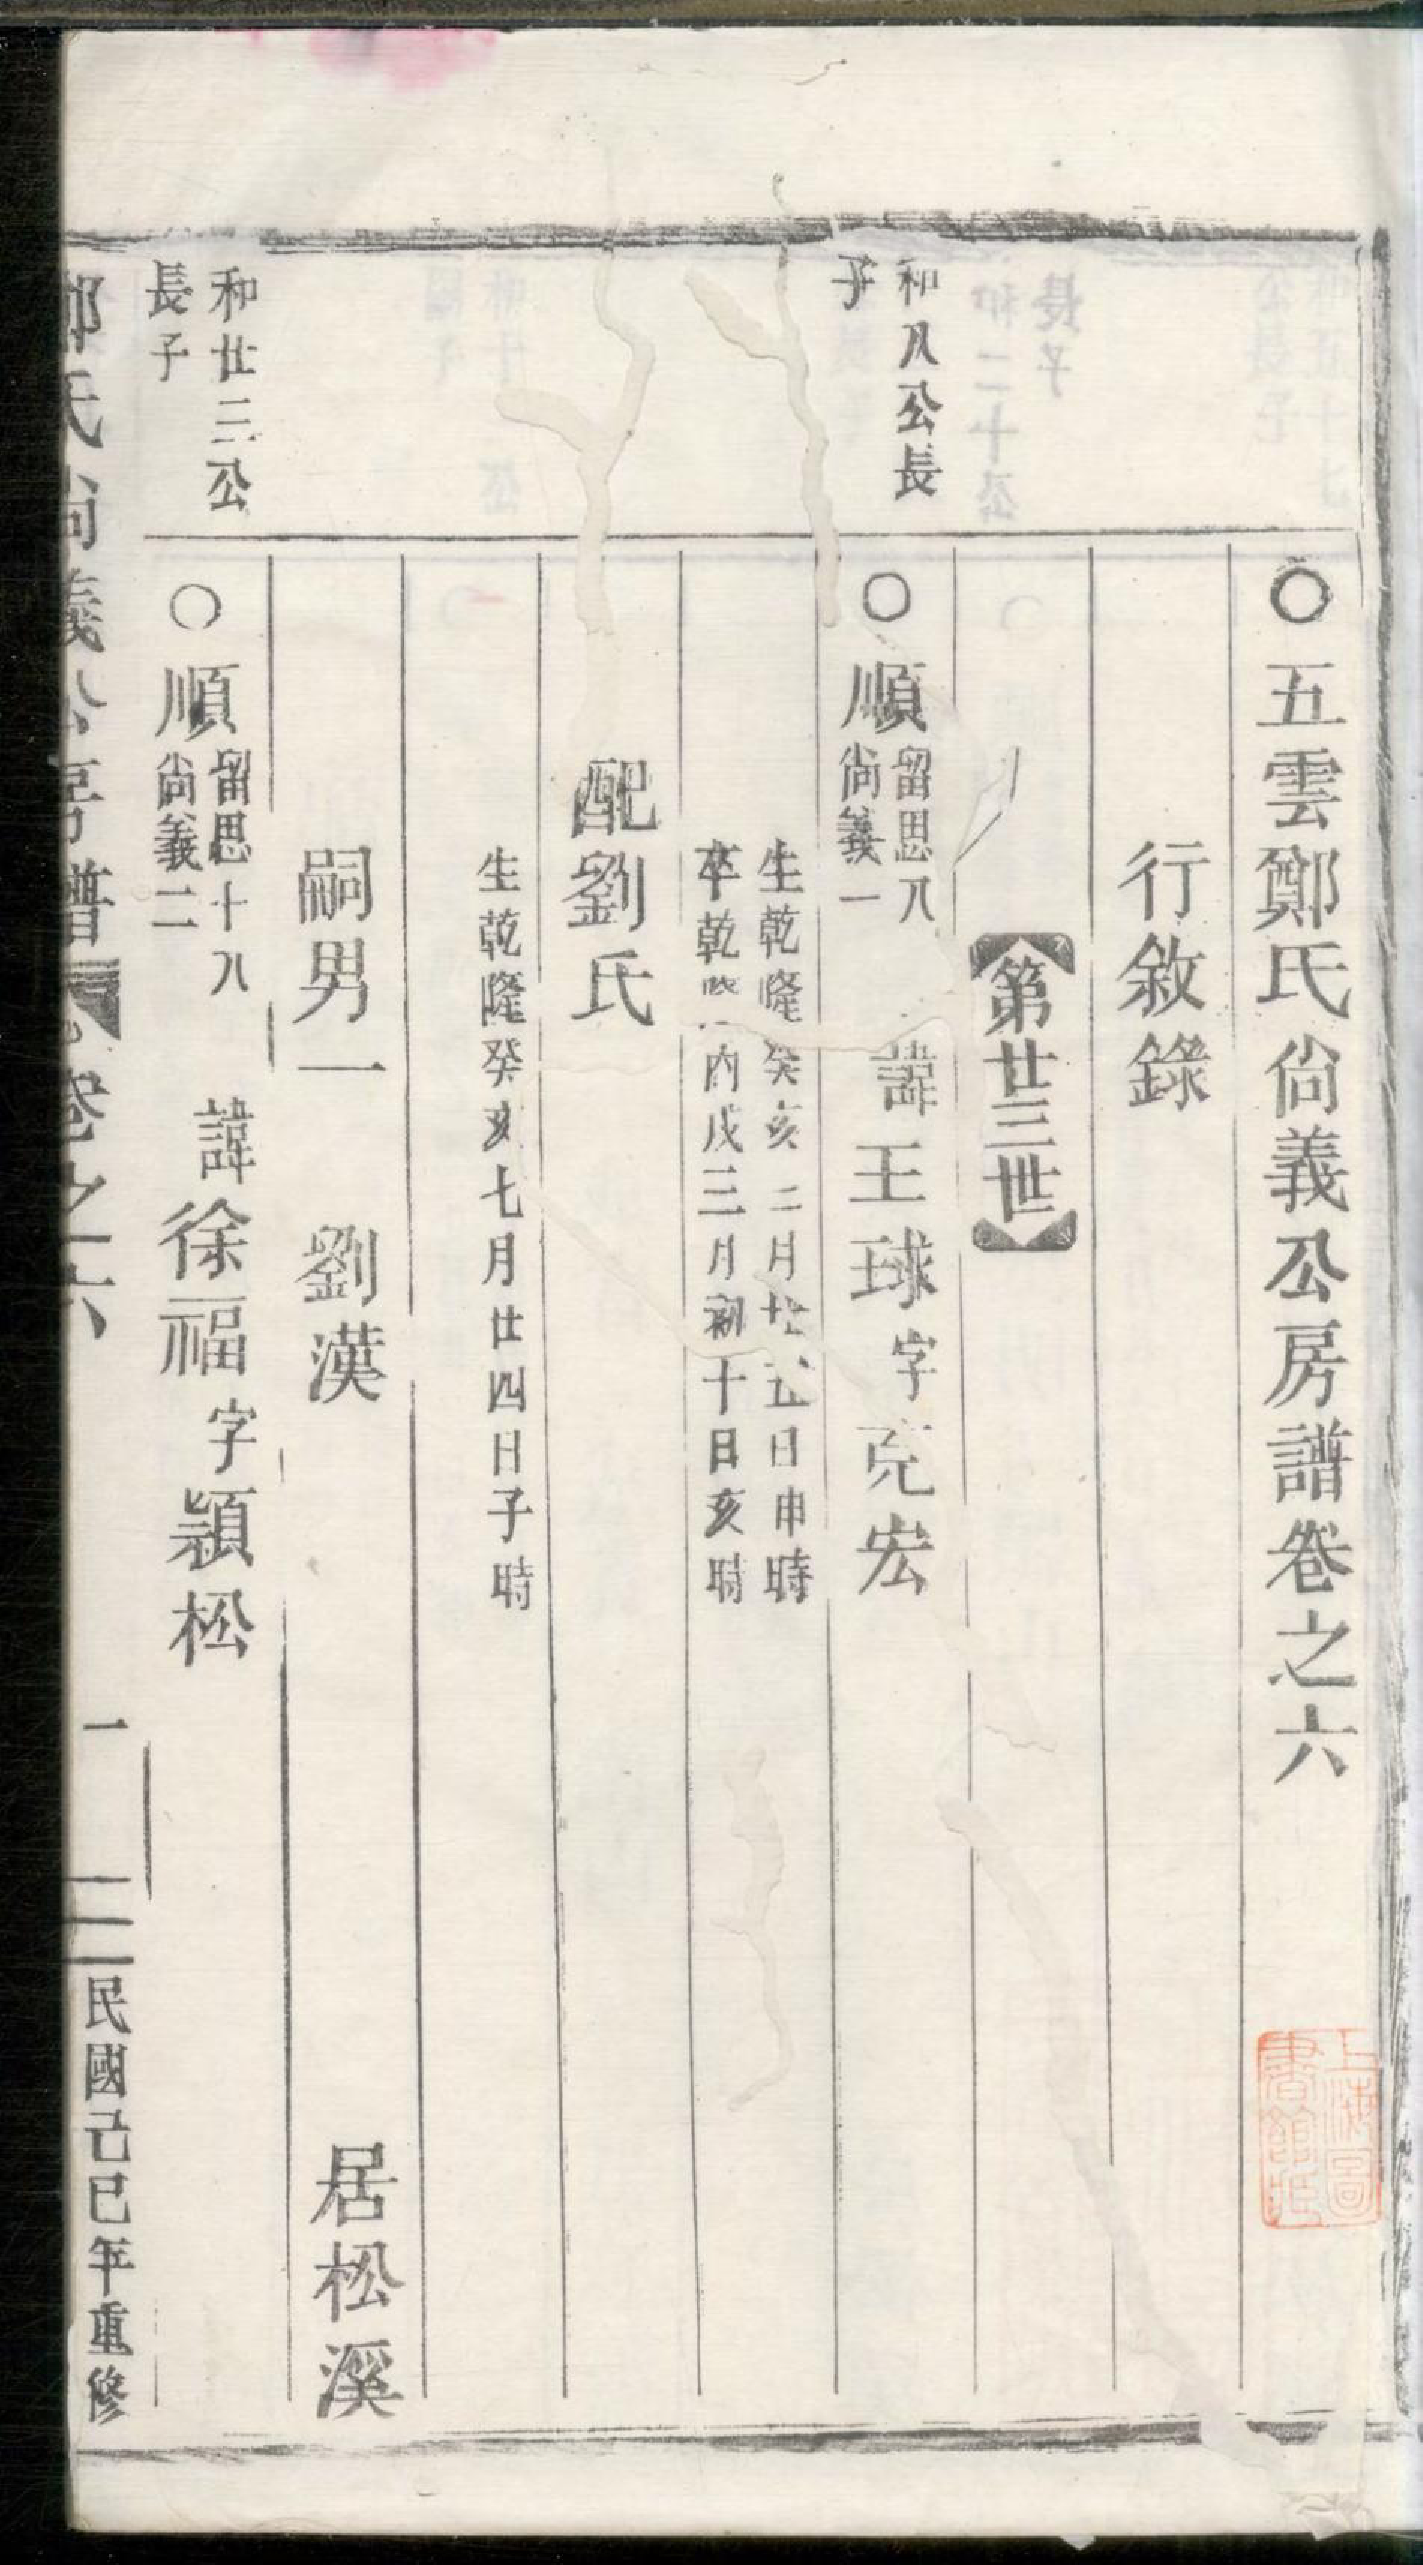 ○五雲鄭氏尙義公房譜卷之六
行敘錄
第廿三世
和八公長
子
○順留思八
尙義一
諱王球字克宏
生乾隆癸亥二月廿五日申時
卒乾隆丙戌三月初十日亥時
配劉氏
生乾隆癸亥七月廿四日子時
嗣男一 劉漢 居松溪
和廿三公
長子
○順留思十八
尙義二
諱徐福字穎松
鄭氏尙義公房譜 卷之六 一 民國己巳年重修
上海圖
書館藏